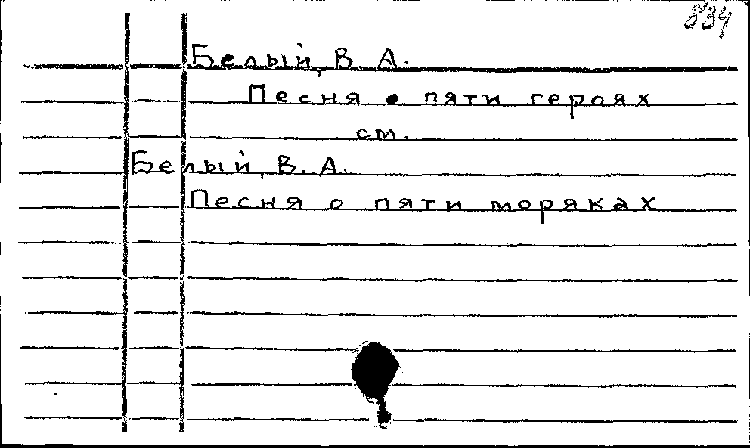 834
Белый, В. А.
Песня о пяти героях
см.
Белый, В. А.
Песня о пяти моряках